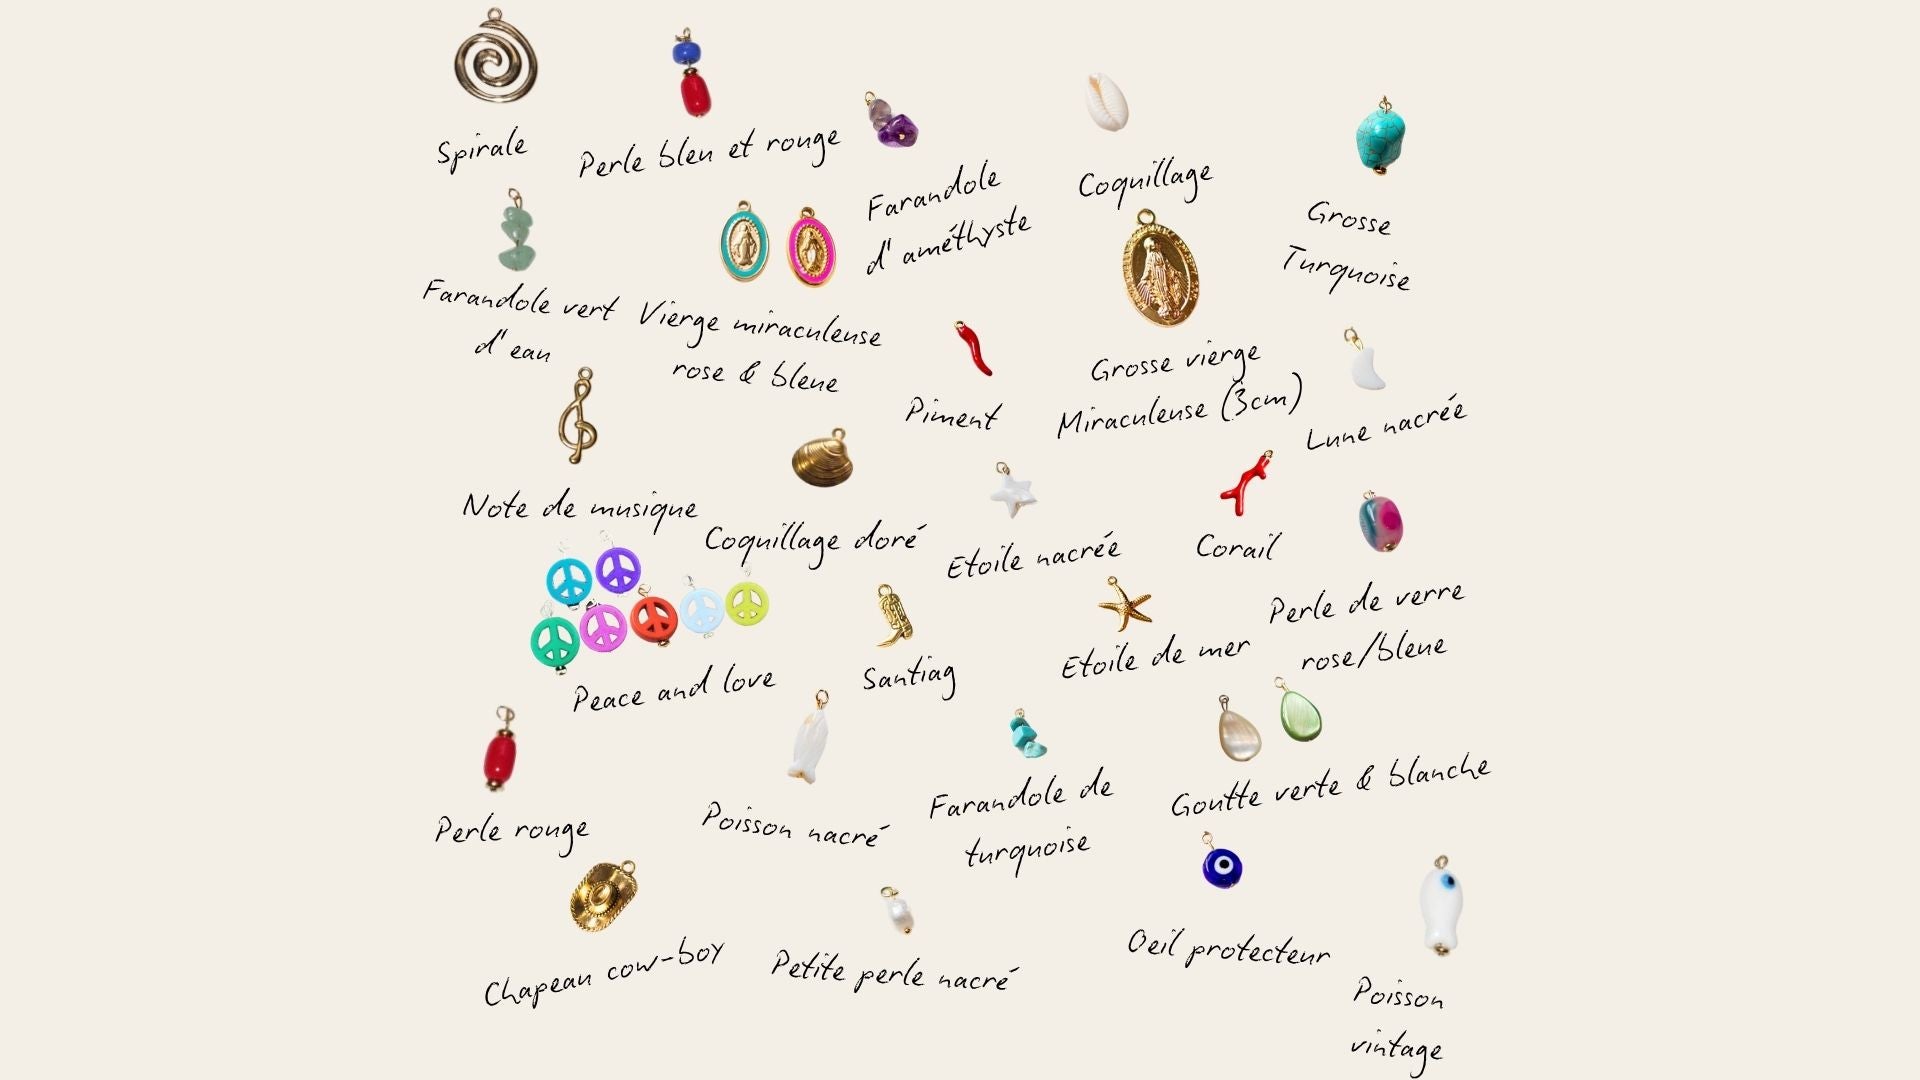 Spirale
Perle bleu et rouge
Farandole
d'améthyste
Coquillage
Grosse
Turquoise
Farandole vert
d'eau
Vierge miraculeuse
rose & bleue
Piment
Grosse vierge
Miraculeuse (3cm)
Lune nacrée
Note de musique
Coquillage doré
Etoile nacrée
Corail
Perle de verre
rose/bleue
Peace and love
Santiag
Etoile de mer
Perle rouge
Poisson nacré
Farandole de
turquoise
Goutte verte & blanche
Chapeau cow-boy
Petite perle nacré
Oeil protecteur
Poisson
vintage